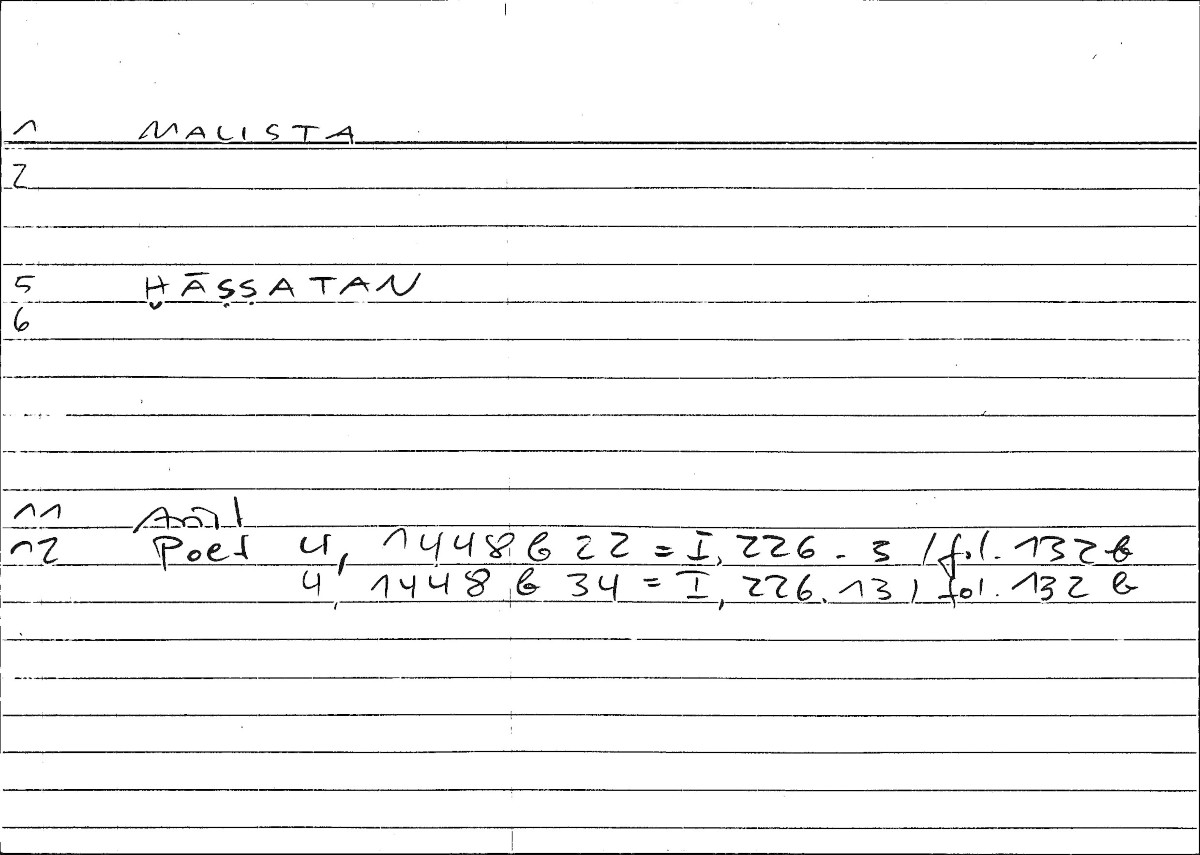 1 MALISTA
2
5 ḪĀṢṢATAN
6
11 Arist
12 Poet 4, 1448 b 22 = I, 226.3 / fol. 132 b
4, 1448 b 34 = I, 226.13 / fol. 132 b